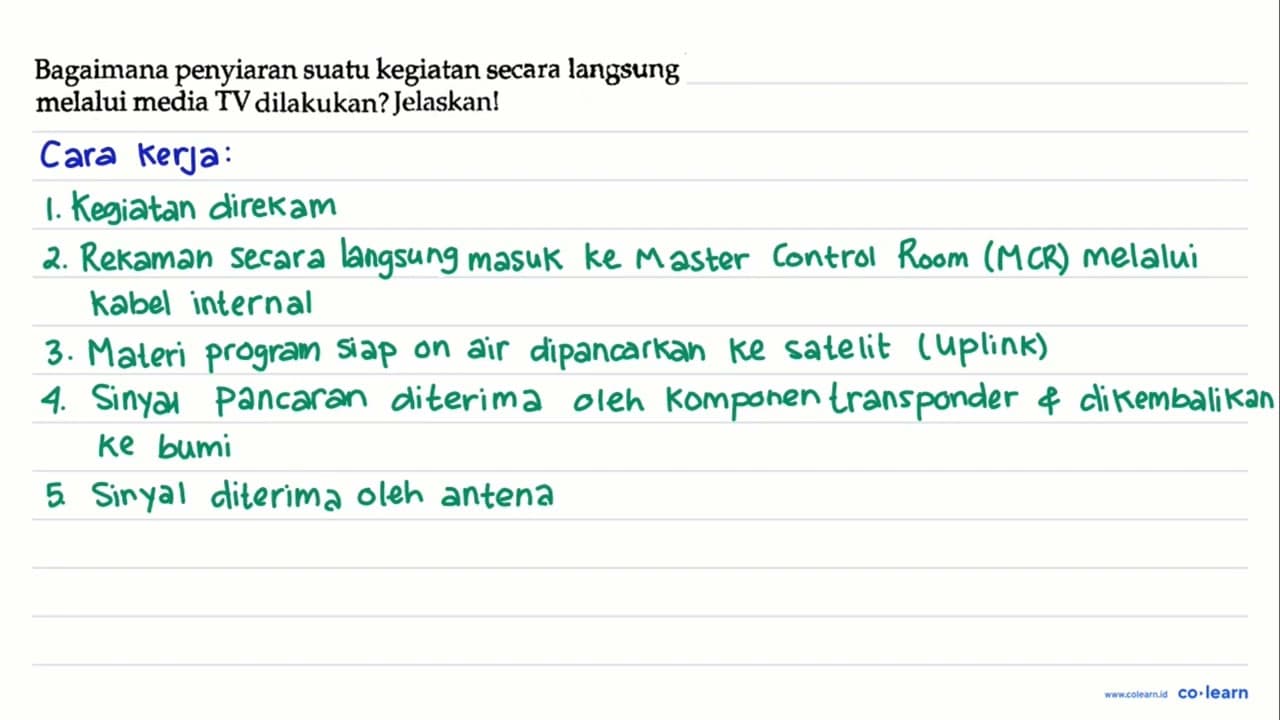 Bagaimana penyiaran suatu kegiatan secara langsung
melalui media TV dilakukan? Jelaskan!
Cara kerja:
1. Kegiatan direkam
2. Rekaman secara langsung masuk ke Master Control Room (MCR) melalui
kabel internal
3. Materi program siap on air dipancarkan ke satelit (Uplink)
4. Sinyal pancaran diterima oleh komponen transponder & dikembalikan
ke bumi
5. Sinyal diterima oleh antena
www.colearn.id co·learn